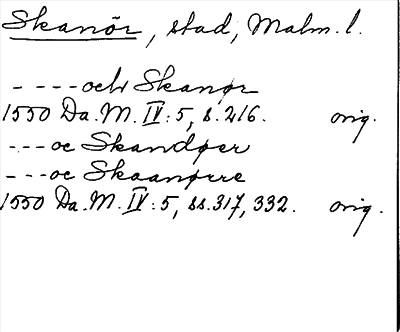 Skanör, stad, Malm. l.
- - - - och Skanør
1550 Da. M. IV: 5, s. 216. orig.
- - - oc Skandøer
- - - oc Skaanøre
1550 Da. M. IV: 5, ss. 317, 332. orig.